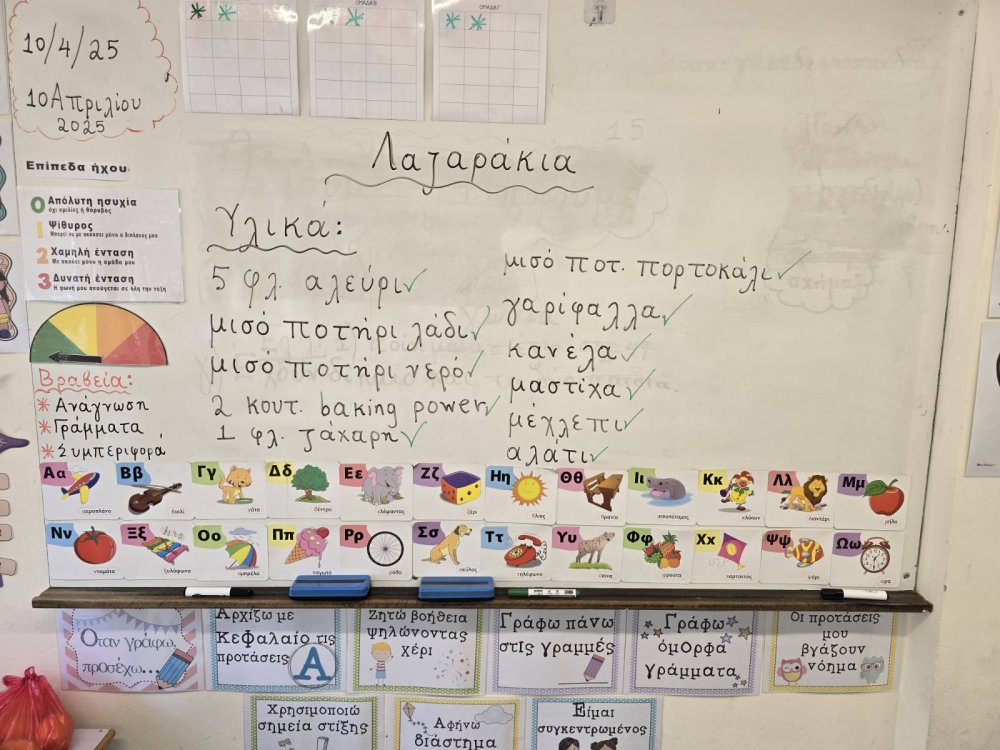 10/4/25
10 Απριλίου
2025
ΟΜΑΔΑ Β
ΟΜΑΔΑ Γ
Επίπεδα ήχου
0 Απόλυτη ησυχία
όχι ομιλίες ή θόρυβος
1 Ψίθυρος
Μπορεί να με ακούσει μόνο ο διπλανος μου
2 Χαμηλή ένταση
Με ακούει μόνο η ομάδα μου
3 Δυνατή ένταση
Η φωνή μου ακούγεται σε όλη την τάξη
Βραβεία:
* Ανάγνωση
* Γράμματα
* Συμπεριφορά
Λαζαράκια
Υλικά:
5 φλ. αλεύρι ✓
μισό ποτήρι λάδι ✓
μισό ποτήρι νερό ✓
2 κουτ. baking power ✓
1 φλ. ζάχαρη ✓
μισό ποτ. πορτοκάλι ✓
γαρίφαλλα ✓
κανέλα ✓
μαστίχα ✓
μέχλεπι ✓
αλάτι ✓
Αα Ββ Γγ Δδ Εε Ζζ Ηη Θθ Ιι Κκ Λλ Μμ
αεροπλάνο βιολί γάτα δέντρο ελέφαντας ζάρι ήλιος θρανίο ιπποπόταμος κλόουν λιοντάρι μήλο
Νν Ξξ Οο Ππ Ρρ Σσ Ττ Υυ Φφ Χχ Ψψ Ωω
ντομάτα ξυλόφωνο ομπρέλα παγωτό ρόδα σκύλος τηλέφωνο ύαινα φρούτα χαρταετός ψάρι ώρα
Όταν γράφω,
προσέχω...
Αρχίζω με
κεφαλαίο τις
προτάσεις
Α
Ζητώ βοήθεια
ψηλώνοντας
χέρι
Γράφω πάνω
στις γραμμές
Γράφω
όμορφα
γράμματα
Οι προτάσεις
μου
βγάζουν
νόημα
Χρησιμοποιώ
σημεία στίξης
Αφήνω
διάστημα
Είμαι
συγκεντρωμένος